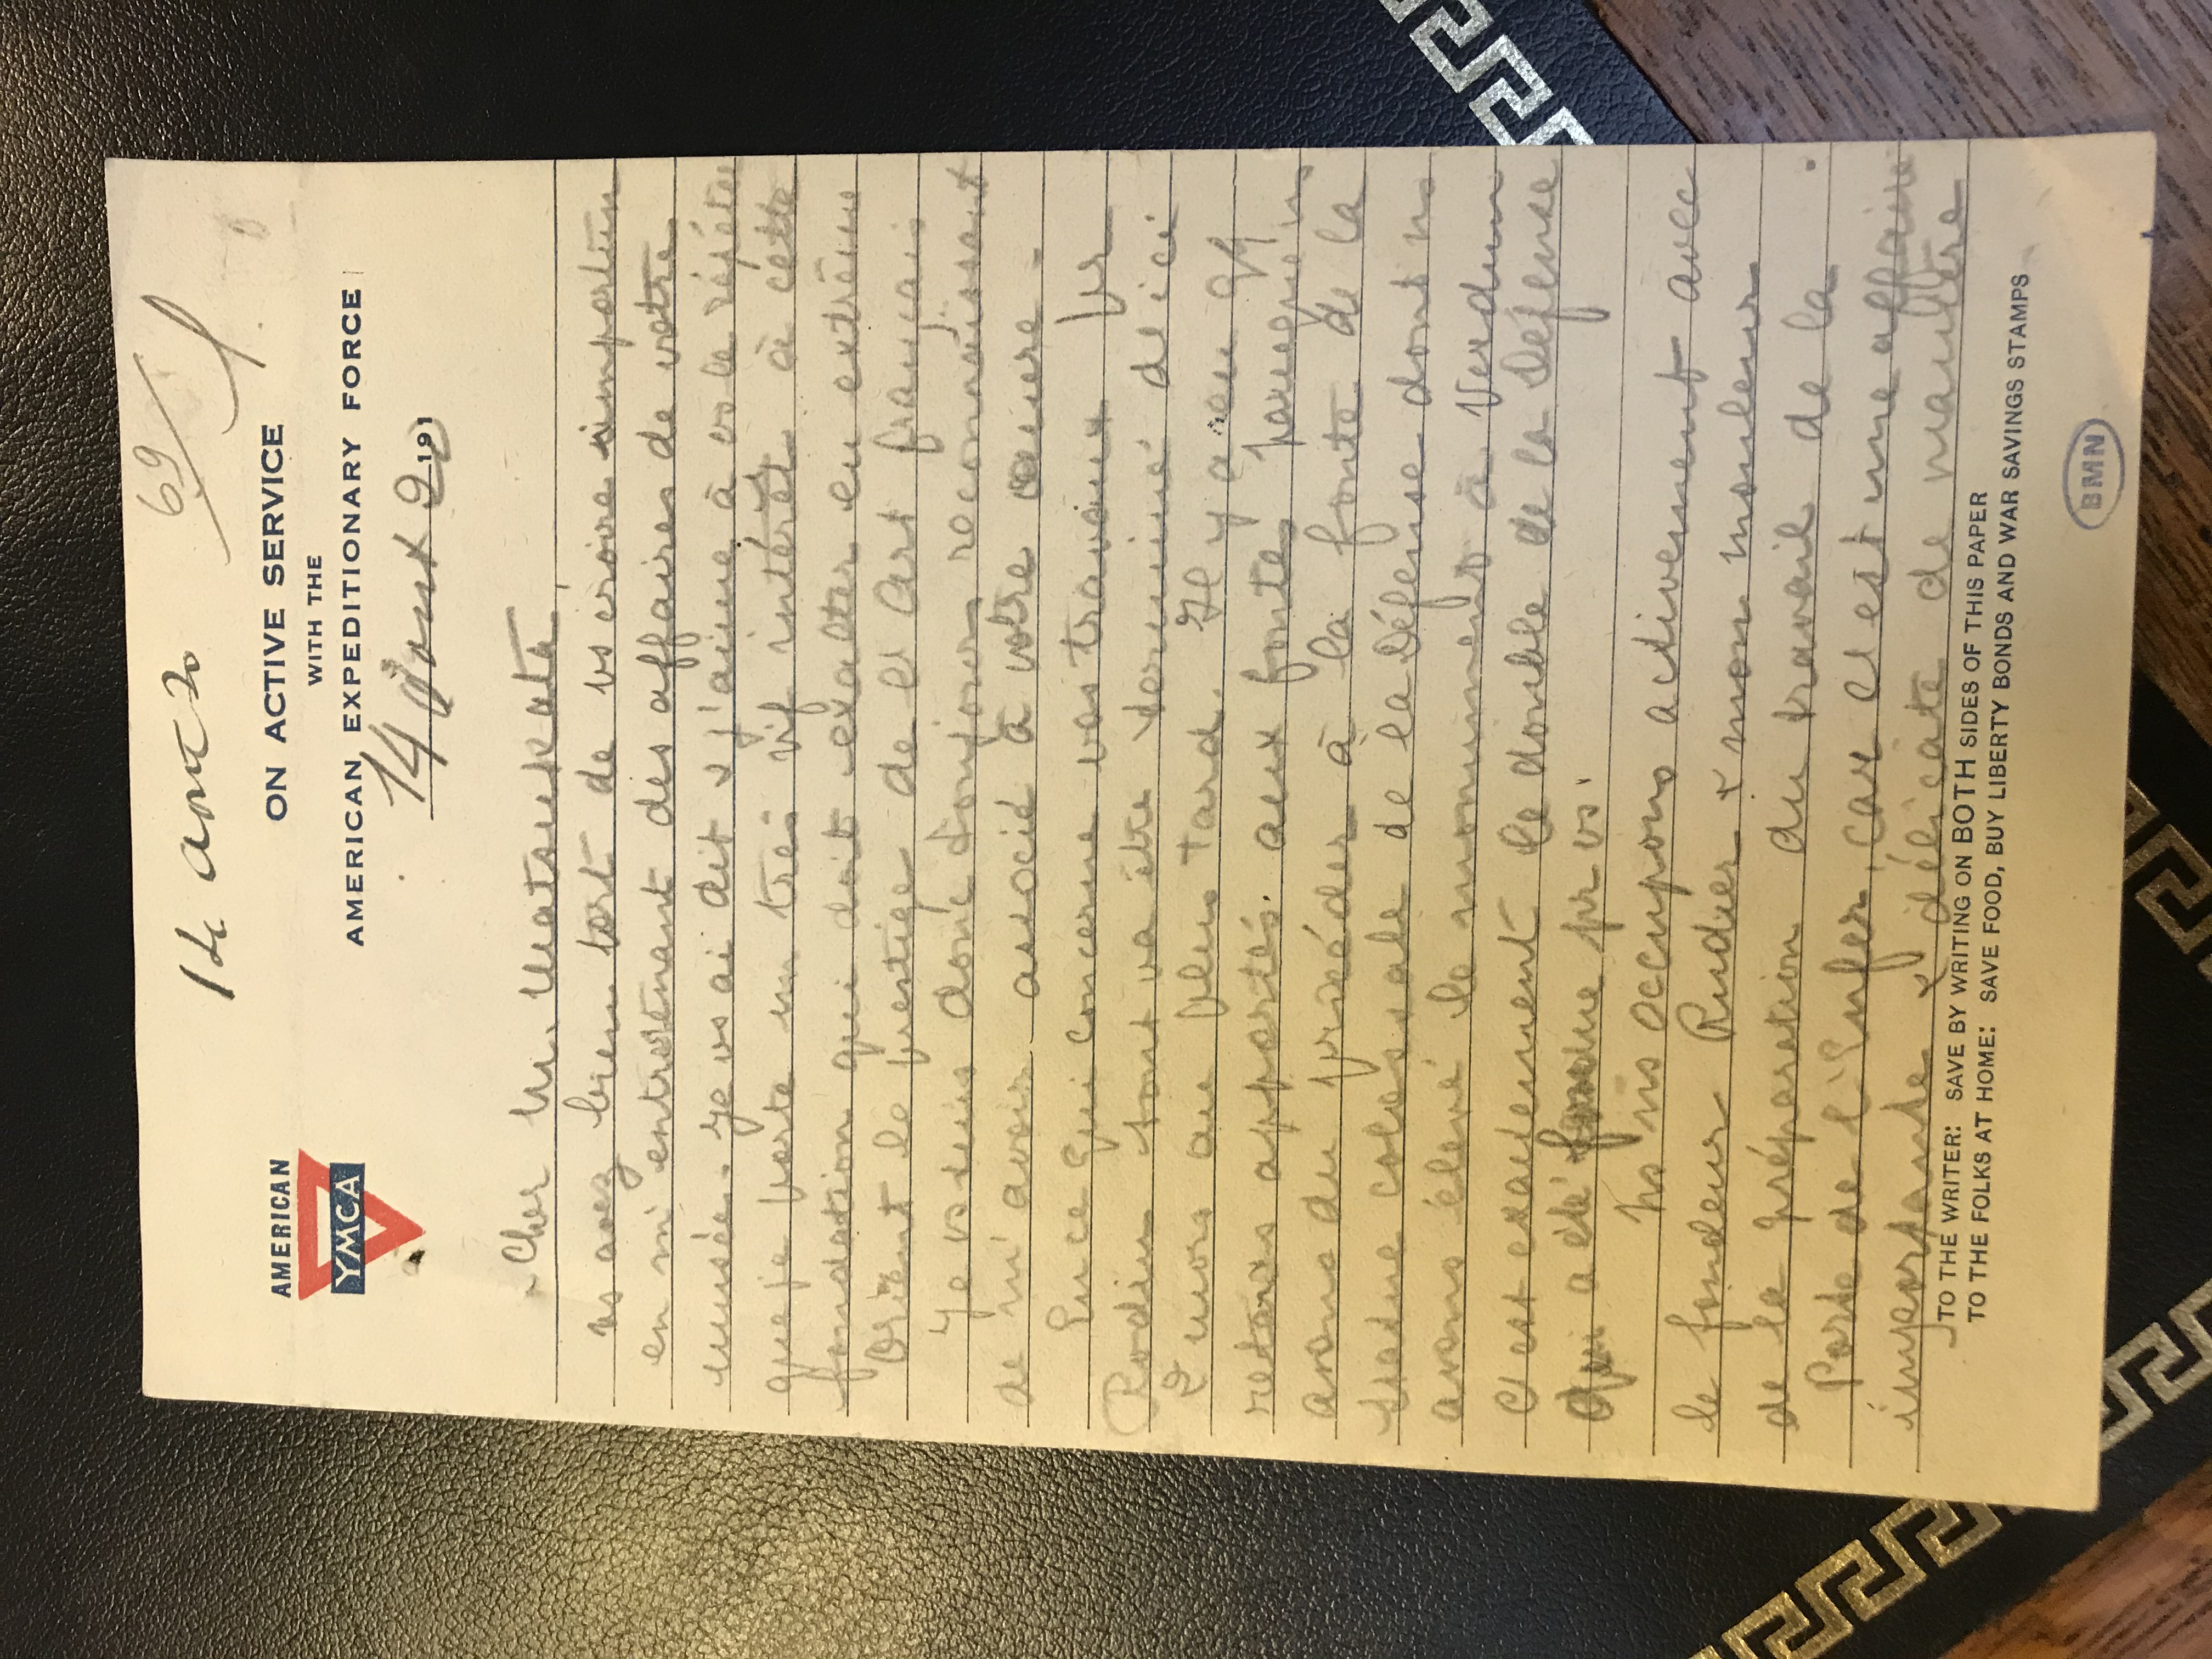 14 août 20
69
AMERICAN
YMCA
ON ACTIVE SERVICE
WITH THE
AMERICAN EXPEDITIONARY FORCE
14 Août 2 191
Cher M. Matsukata,
vs avez bien tort de vs croire importun
en m'entretenant des affaires de votre
musée. Je vs ai dit & j'aime à vs le répéter
que je porte un très vif intérêt à cette
fondation qui doit exalter en extrême
Orient le prestige de l'Art français
Je vs suis donc toujours reconnaissant
de m'avoir associé à votre œuvre.
En ce qui concerne vos travaux pr
Rodin tout va être terminé d'ici
2 mois au plus tard. Il y a eu qq
retards apportés aux fontes parce que ns
avons du procéder à la fonte de la
statue colossale de la Défense dont ns
avons élevé le monument à Verdun
C'est exactement le double de la Défense
qui a été fondue pr vs.
Ns ns occupons activement avec
le fondeur Rudier & mon mouleur
de la préparation du travail de la
Porte de l'Enfer, car c'est une affaire
importante & délicate de manière
TO THE WRITER: SAVE BY WRITING ON BOTH SIDES OF THIS PAPER
TO THE FOLKS AT HOME: SAVE FOOD, BUY LIBERTY BONDS AND WAR SAVINGS STAMPS
BMN